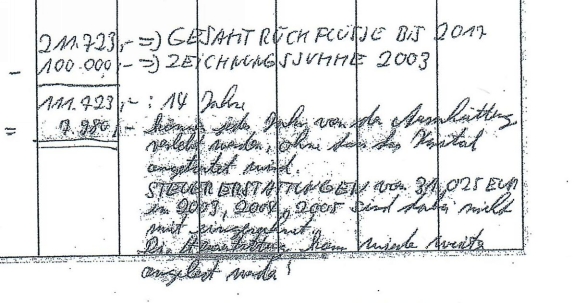 211.723,- => GESAMTRÜCKFLÜSSE BIS 2017
- 100.000,- => ZEICHNUNGSSUMME 2003
111.723,- : 14 Jahre
= 7.980,- können jedes Jahr von der Ausschüttung
verlebt werden, ohne dass das Kapital
angetastet wird.
STEUERERSTATTUNGEN von 31,025 EUR
in 2003, 2004, 2005 sind dabei nicht
mit eingerechnet.
Die kann wieder
angelegt werden!